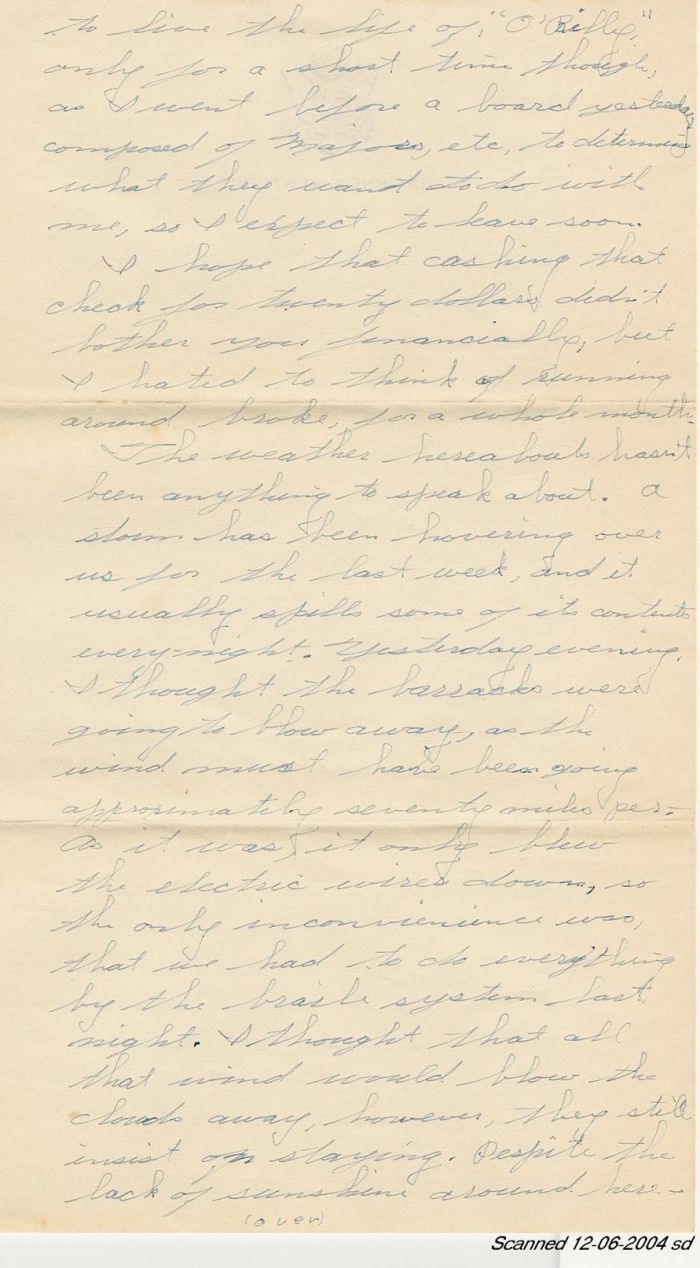 to live the life of, "O'Rilly,"
only for a short time though,
as I went before a board yesterday
composed of Majors, etc, to determine
what they want to do with
me, so I expect to leave soon.
I hope that cashing that
check for twenty dollars, didn't
bother you financially, but
I hated to think of running
around broke, for a whole month.
The weather hereabouts hasn't
been anything to speak about. A
storm has been hovering over
us for the last week, and it
usually spills some of its contents
every-night. Yesterday evening,
I thought the barracks were
going to blow away, as the
wind must have been going
approximately seventy miles per-
As it was, it only blew
the electric wires down, so
the only inconvienience was,
that we had to do everything
by the braile system last
night. I thought that all
that wind would blow the
clouds away, however, they still
insist on staying. Despite the
lack of sunshine around here-
(over)
Scanned 12-06-2004 sd